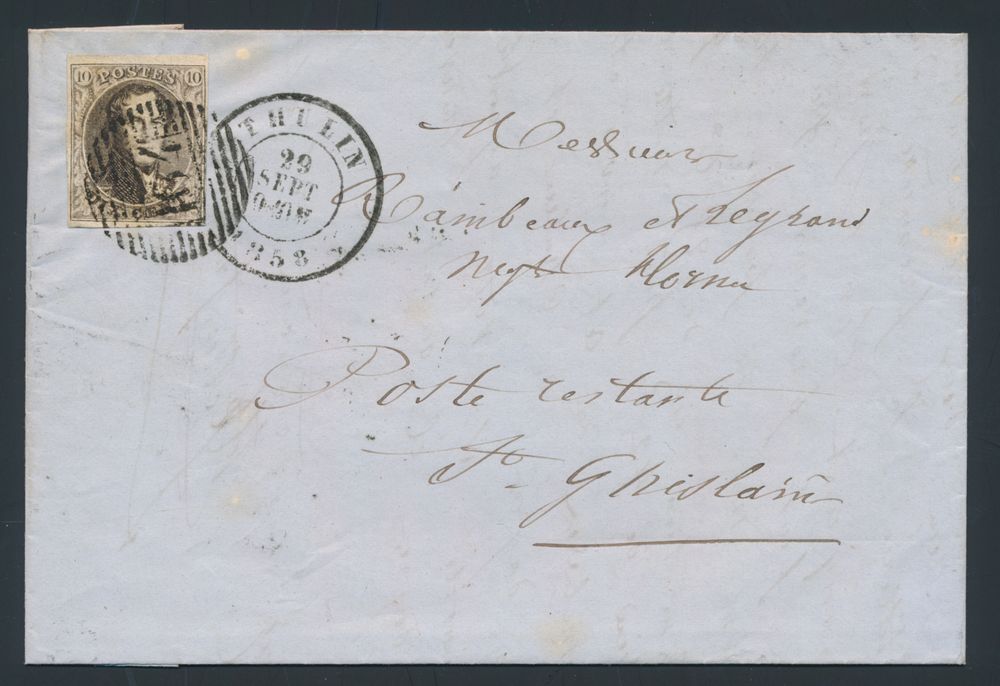 10 POSTES 10
THULIN
29
SEPT
1858
Messieurs
Rambeaux et Legrand
Poste restante
St. Ghislain